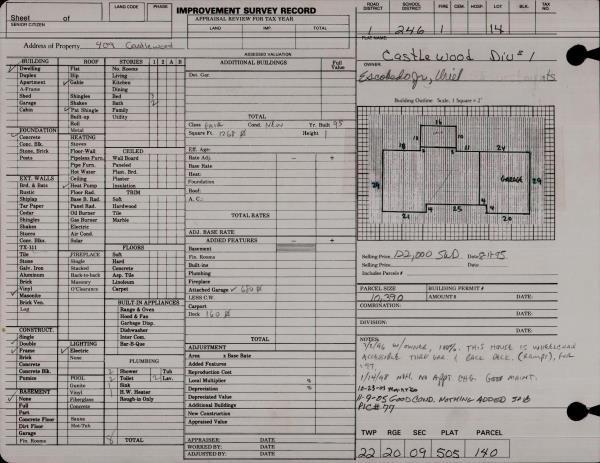 Sheet of
SENIOR CITIZEN
LAND CODE PHASE
IMPROVEMENT SURVEY RECORD
APPRAISAL REVIEW FOR TAX YEAR
LAND IMP. TOTAL
ROAD DISTRICT SCHOOL DISTRICT FIRE CEM. HOSP. LOT BLK. TAX NO.
246 1 14
PLAT NAME
Castlewood Div #1
OWNER
Escobedo Jr, Uriel
Address of Property 409 Castlewood
ASSESSED VALUATION
BUILDING ROOF STORIES 1 2 A B
Dwelling Flat No. Rooms
Duplex Hip Living
Apartment Gable Kitchen
A-Frame Dining
Shed Shingles Bed 3
Garage Shakes Bath 2
Cabin Pat Shingle Family
Built-up Utility
Roll
Metal
FOUNDATION
Concrete HEATING
Conc. Blk. Stoves
Stone, Brick Floor-Wall CEILED
Posts Pipeless Furn. Wall Board
Pipe Furn. Paneled
Hot Water Plan. Brd.
EXT. WALLS Ceiling Plaster
Brd. & Bats Heat Pump Insulation
Rustic Floor Rad. TRIM
Shiplap Base B. Rad. Soft
Tar Paper Panel Rad. Hardwood
Cedar Oil Burner Tile
Shingles Gas Burner Marble
Shakes Electric
Stores Air Cond.
Conc. Blks. Solar
TX-111 FLOORS
Tile FIREPLACE Soft
Stone Single Hard
Galv. Iron Stacked Concrete
Aluminum Back-to-back Asp. Tile
Brick Masonry Linoleum
Vinyl O'Clearance Carpet
Masonite
Brick Ven. BUILT-IN APPLIANCES
Log Range & Oven
Hood & Fan
CONSTRUCT. Garbage Disp.
Single Dishwasher
Double LIGHTING Inter Com.
Frame Electric Bar-B-Que
Brick None
Concrete PLUMBING
Concrete Blk. 2 Shower Tub
Pumice POOL 2 Toilet 2 Lav.
Gunite Sink
BASEMENT Vinyl H.W. Heater
None Fiberglass Rough-in Only
Full Concrete
Part
Concrete Floor Sauna
Dirt Floor Hot-Tub
Garage
Fin. Rooms 8 TOTAL
ADDITIONAL BUILDINGS Full Value
Det. Gar.
TOTAL
Class Cond. New Yr. Built 95
Square Ft. 1268 Height 1
Eff. Age:
Rate Adj. − +
Base Rate:
Heat:
Foundation
Roof:
A. C.:
TOTAL RATES
ADJ. BASE RATE
ADDED FEATURES − +
Basement
Fin. Rooms
Built-ins
Plumbing
Fireplace
Attached Garage
LESS C.W.
Carport
Deck 160
TOTAL
ADJUSTMENT
Area x Base Rate
Added Features
Reproduction Cost
Local Multiplier %
Depreciation %
Depreciated Value
Additional Buildings
New Construction
Appraised Value
APPRAISER: DATE
WORKED BY: DATE
ADJUSTED BY: DATE
Building Outline Scale, 1 Square = 2'
16
18 11 24
29 GARAGE 29
21 4 25 4 20
Selling Price 122,000 SWD Date
Selling Price Date
Includes Parcels #
PARCEL SIZE BUILDING PERMIT #
10,390 AMOUNT $ DATE:
CONDITION: DATE:
DIVISION: DATE:
NOTES:
W/OWNER, 100%. THIS HOUSE IS WHEELCHAIR
ACCESSIBLE THRU GAR. & BACK DECK. (RAMPS), FOR
1/14/98 NO APPT. CHG. GOOD MAINT.
10-23-03
11-9-05 GOOD COND. NOTHING ADDED
PIC# 77
TWP RGE SEC PLAT PARCEL
22 20 09 505 140